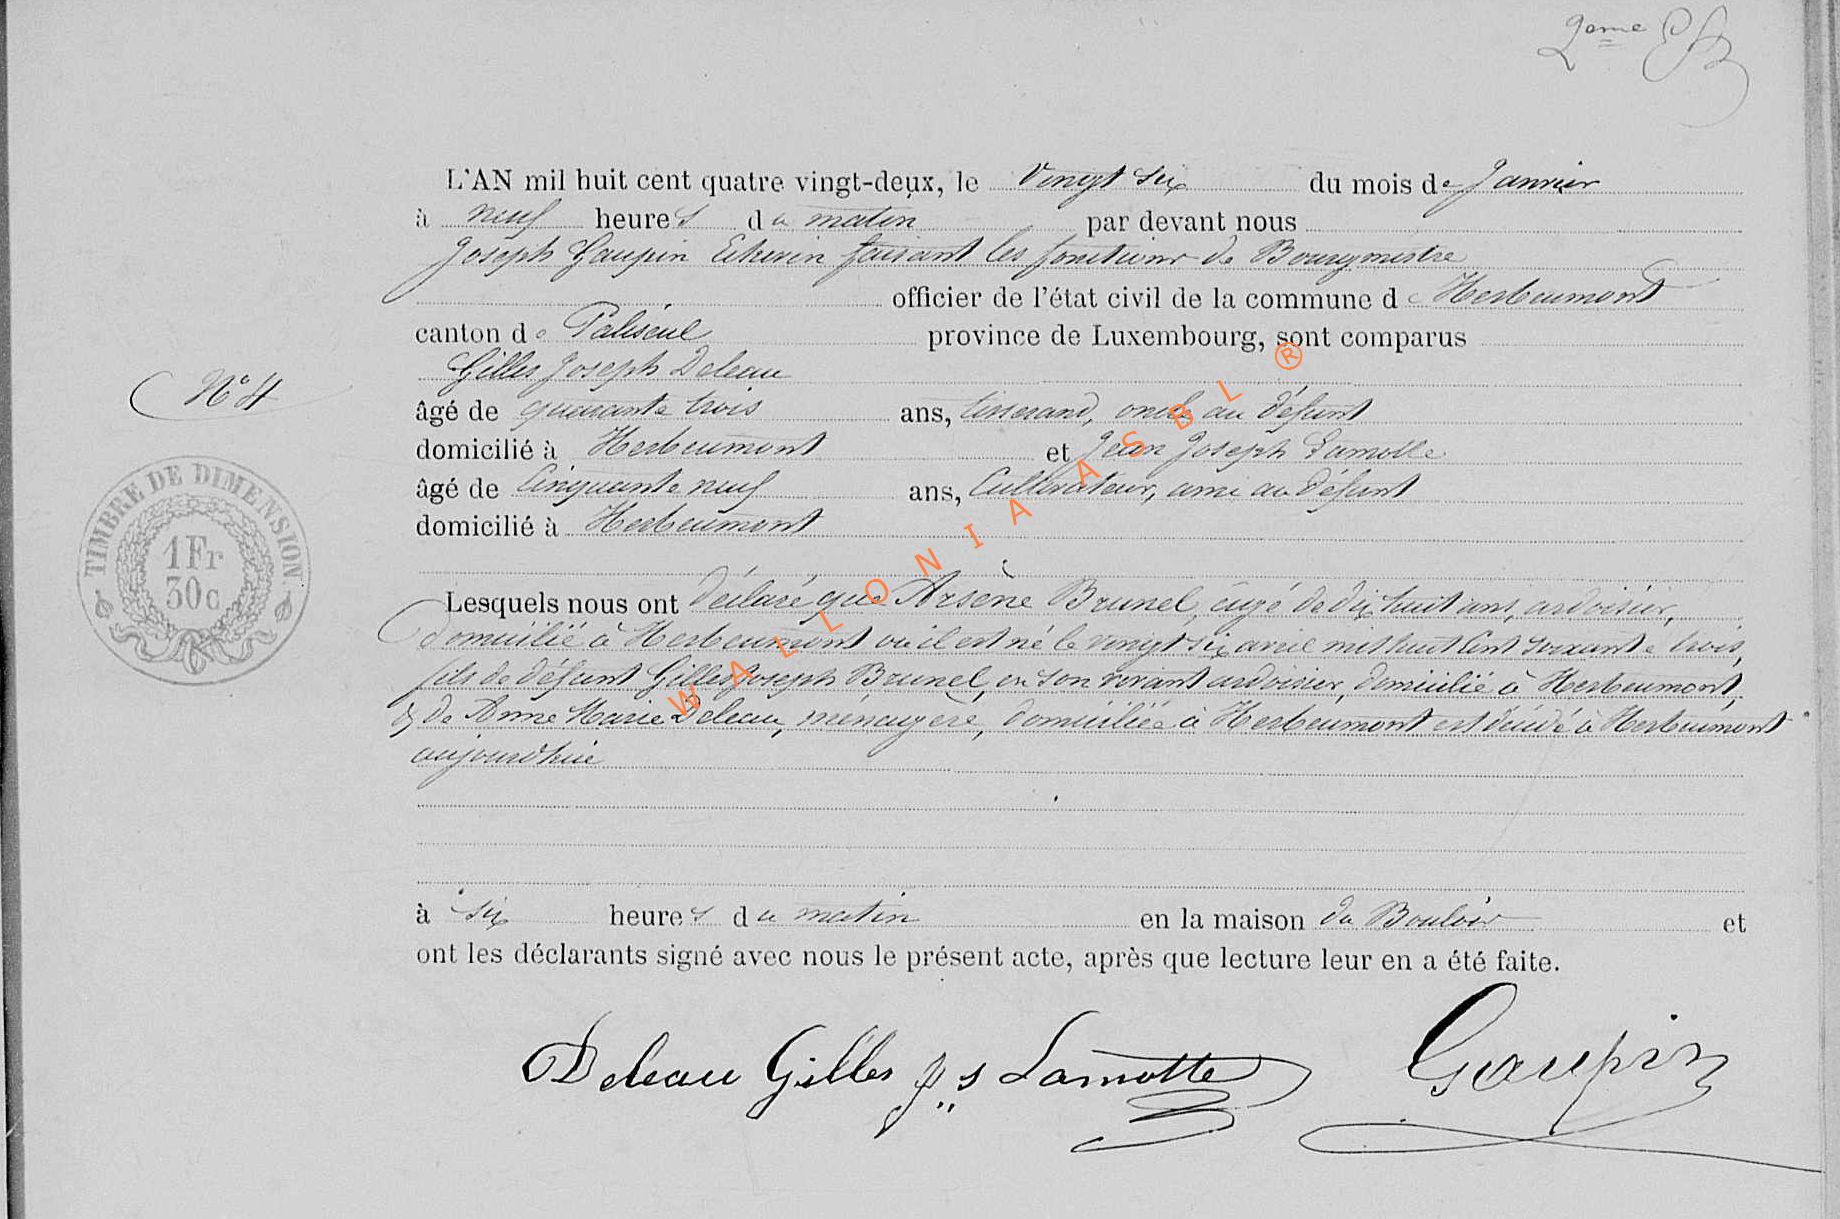 2eme
L'AN mil huit cent quatre vingt-deux, le Vingt six du mois de Janvier
à neuf heures du matin par devant nous
Joseph Gaupin Echevin faisant les fonctions de Bourgmestre
officier de l'état civil de la commune de Herbeumont
canton de Paliseul province de Luxembourg, sont comparus
Gilles Joseph Deleau
âgé de quarante trois ans, tisserand, oncle au défunt
domicilié à Herbeumont et Jean Joseph Lamotte
N° 4
âgé de Cinquante neuf ans, Cultivateur, ami au défunt
domicilié à Herbeumont
TIMBRE DE DIMENSION
1 Fr
30 c
Lesquels nous ont déclaré que Arsène Brunel, âgé de dix huit ans, ardoisier,
domicilié à Herbeumont où il est né le vingt six avril mil huit cent soixante trois,
fils de défunt Gilles Joseph Brunel, en son vivant ardoisier, domicilié à Herbeumont,
& de Anne Marie Deleau, ménagère, domiciliée à Herbeumont est décédé à Herbeumont
aujourdhui
à six heures du matin en la maison du Bouloir et
ont les déclarants signé avec nous le présent acte, après que lecture leur en a été faite.
Deleau Gilles J s Lamotte Gaupin
WALLONIA ASBL ®